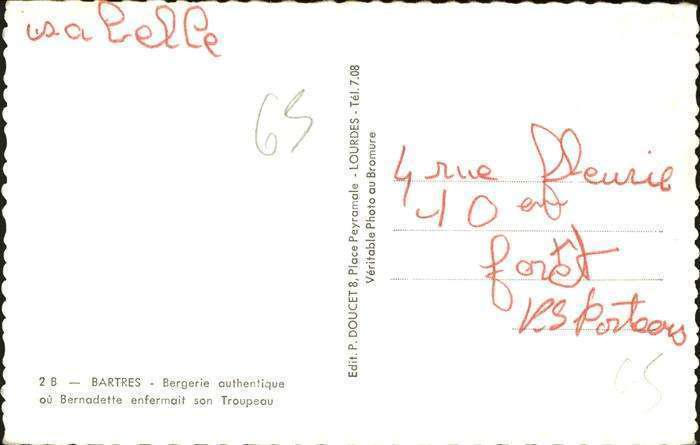 isabelle
65
Edit. P. DOUCET 8, Place Peyramale - LOURDES - Tél. 7.08
Véritable Photo au Bromure
4 rue fleurie
10
forêt
65
2 B — BARTRES - Bergerie authentique
où Bernadette enfermait son Troupeau